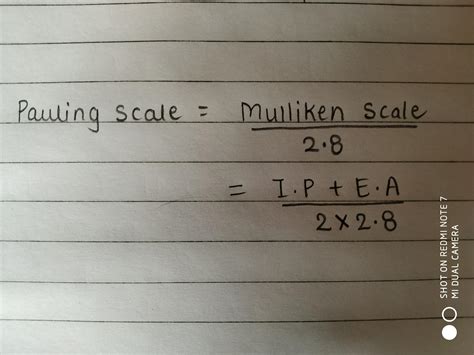 Pauling Scale = Mulliken Scale
2.8
= I.P + E.A
2×2.8
SHOT ON REDMI NOTE 7
MI DUAL CAMERA